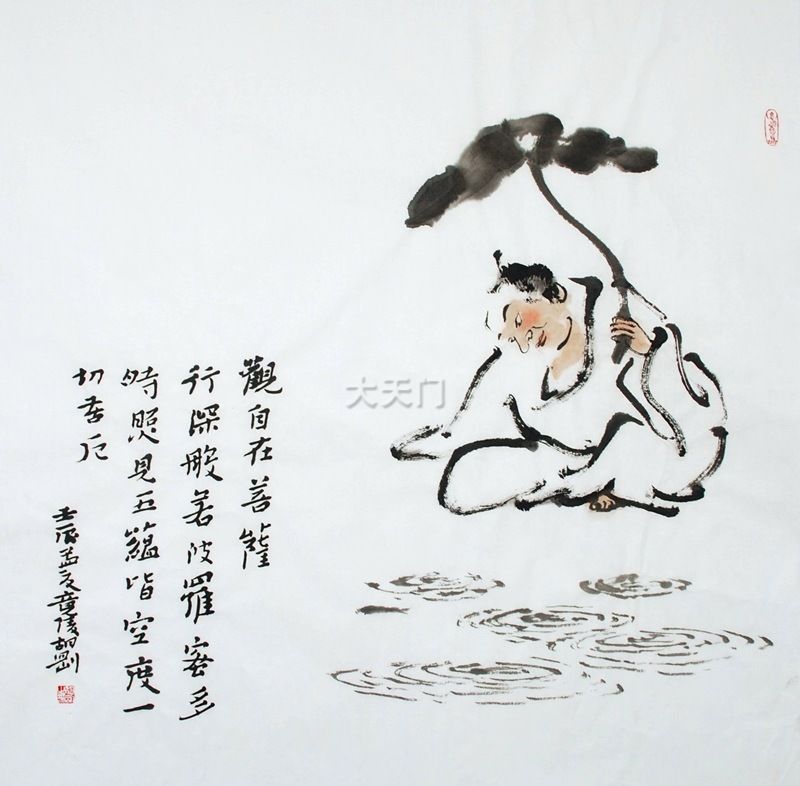 觀自在菩薩
行深般若波羅蜜多
時照見五蘊皆空度一
切苦厄
壬辰孟夏竟陵胡劉
大天门